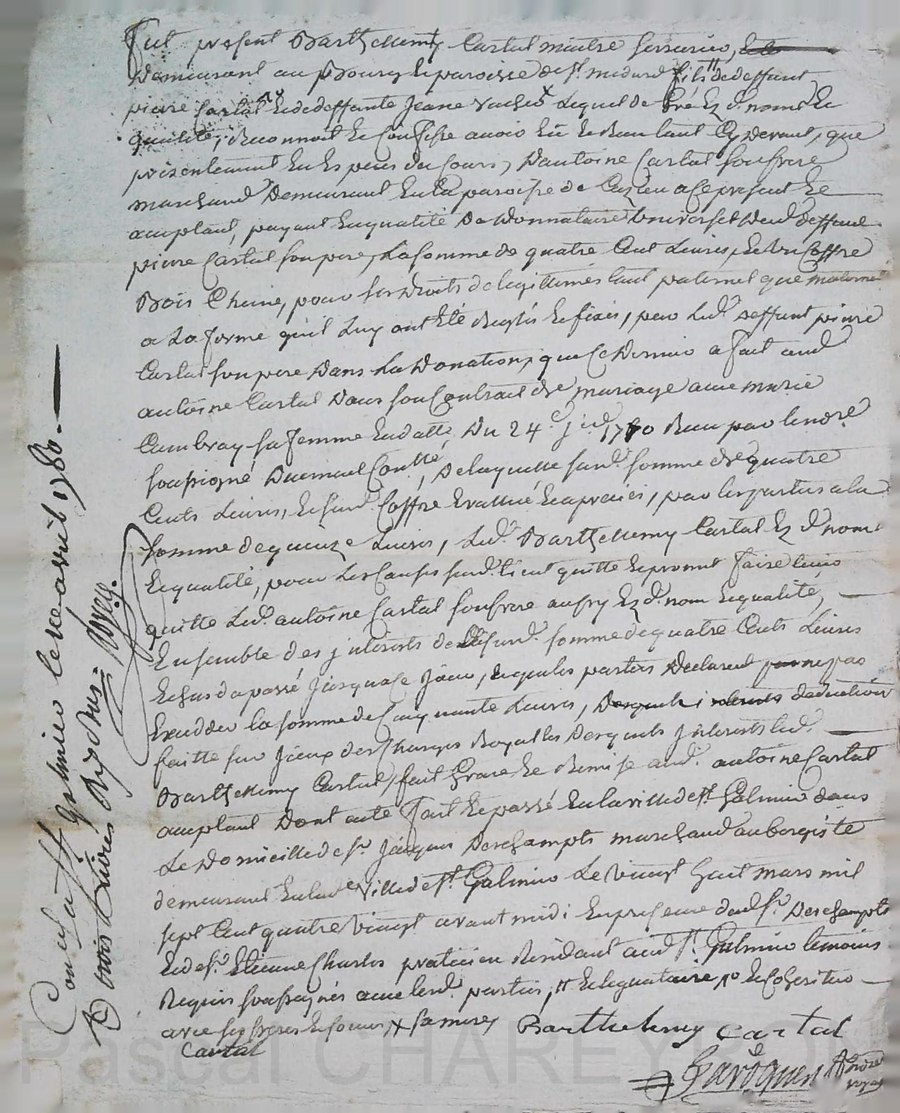 fut present Barthelemy Cartal maitre serrurier,
Demeurant au Bourg & paroisse de st. medard fils de deffunt
pierre Cartal & de deffunte Jeane lequel de Gré Ez d. nom &
qualité, Reconnoit & Confesse avoir Eû & Reçu tant Cy Devant, que
présentement En Espèces du Cours, D'antoine Cartal son frere
marchand Demeurant En la paroisse de a ce present &
acceptant, payant En qualité De Donnataire universel dud. deffunt
pierre Cartal son pere, La somme de quatre Cent Livres, & un Coffre
Bois Chaine, pour ses Droits de legitimes tant paternel que maternel
a La forme qu'il Luy ont Eté Reglés & fixés, par Led. Deffunt pierre
Cartal son pere Dans La Donation, que Ce Dernier a fait aud.
antoine Cartal Dans son Contrat de mariage avec marie
Cambray sa femme En datte Du 24e. 1770 Reçu par le no.re
soussigné Duement Contllé, De laquelle susd. somme de quatre
Cents Livres, & susd. Coffre Evallué & aprecié, par les parties a la
somme de quinze Livres, Led. Barthelemy Cartal Ez d. nom
& qualité, pour Les Causes susd. tient quitte & promet faire tenir
quitte Led. antoine Cartal son frere aussy Ez d. nom & qualité,
Ensemble des jnterets de susd. somme de quatre Cents Livres
du passé Jusqua ce Jour, Lesquels parties Declarent ne pas
Exceder la somme de Cinquante Livres, deduction
faitte sur Jceux des Charges Royalles Desquels Jnterets led.
Barthelemy Cartal, fait Grace & Remise aud. antoine Cartal
acceptant Dont acte fait & passé En la ville de st. Galmier dans
Le Domicille de sr. Jacques Deschampts marchand aubergiste
demeurant En lad. ville de st. Galmier Le vingt huit mars mil
sept Cent quatre vingt avant midi En presence dud. sr. Deschampts
& de sr. Etienne Charles praticien Residant aud. st. Galmier temoins
Requis soussignés avec lesd. parties,
avec ses freres & soeurs
Cartal
Barthelemy Cartal
Controllé a st. Galmier le avril 1780
Reçu trois Livres dix sols